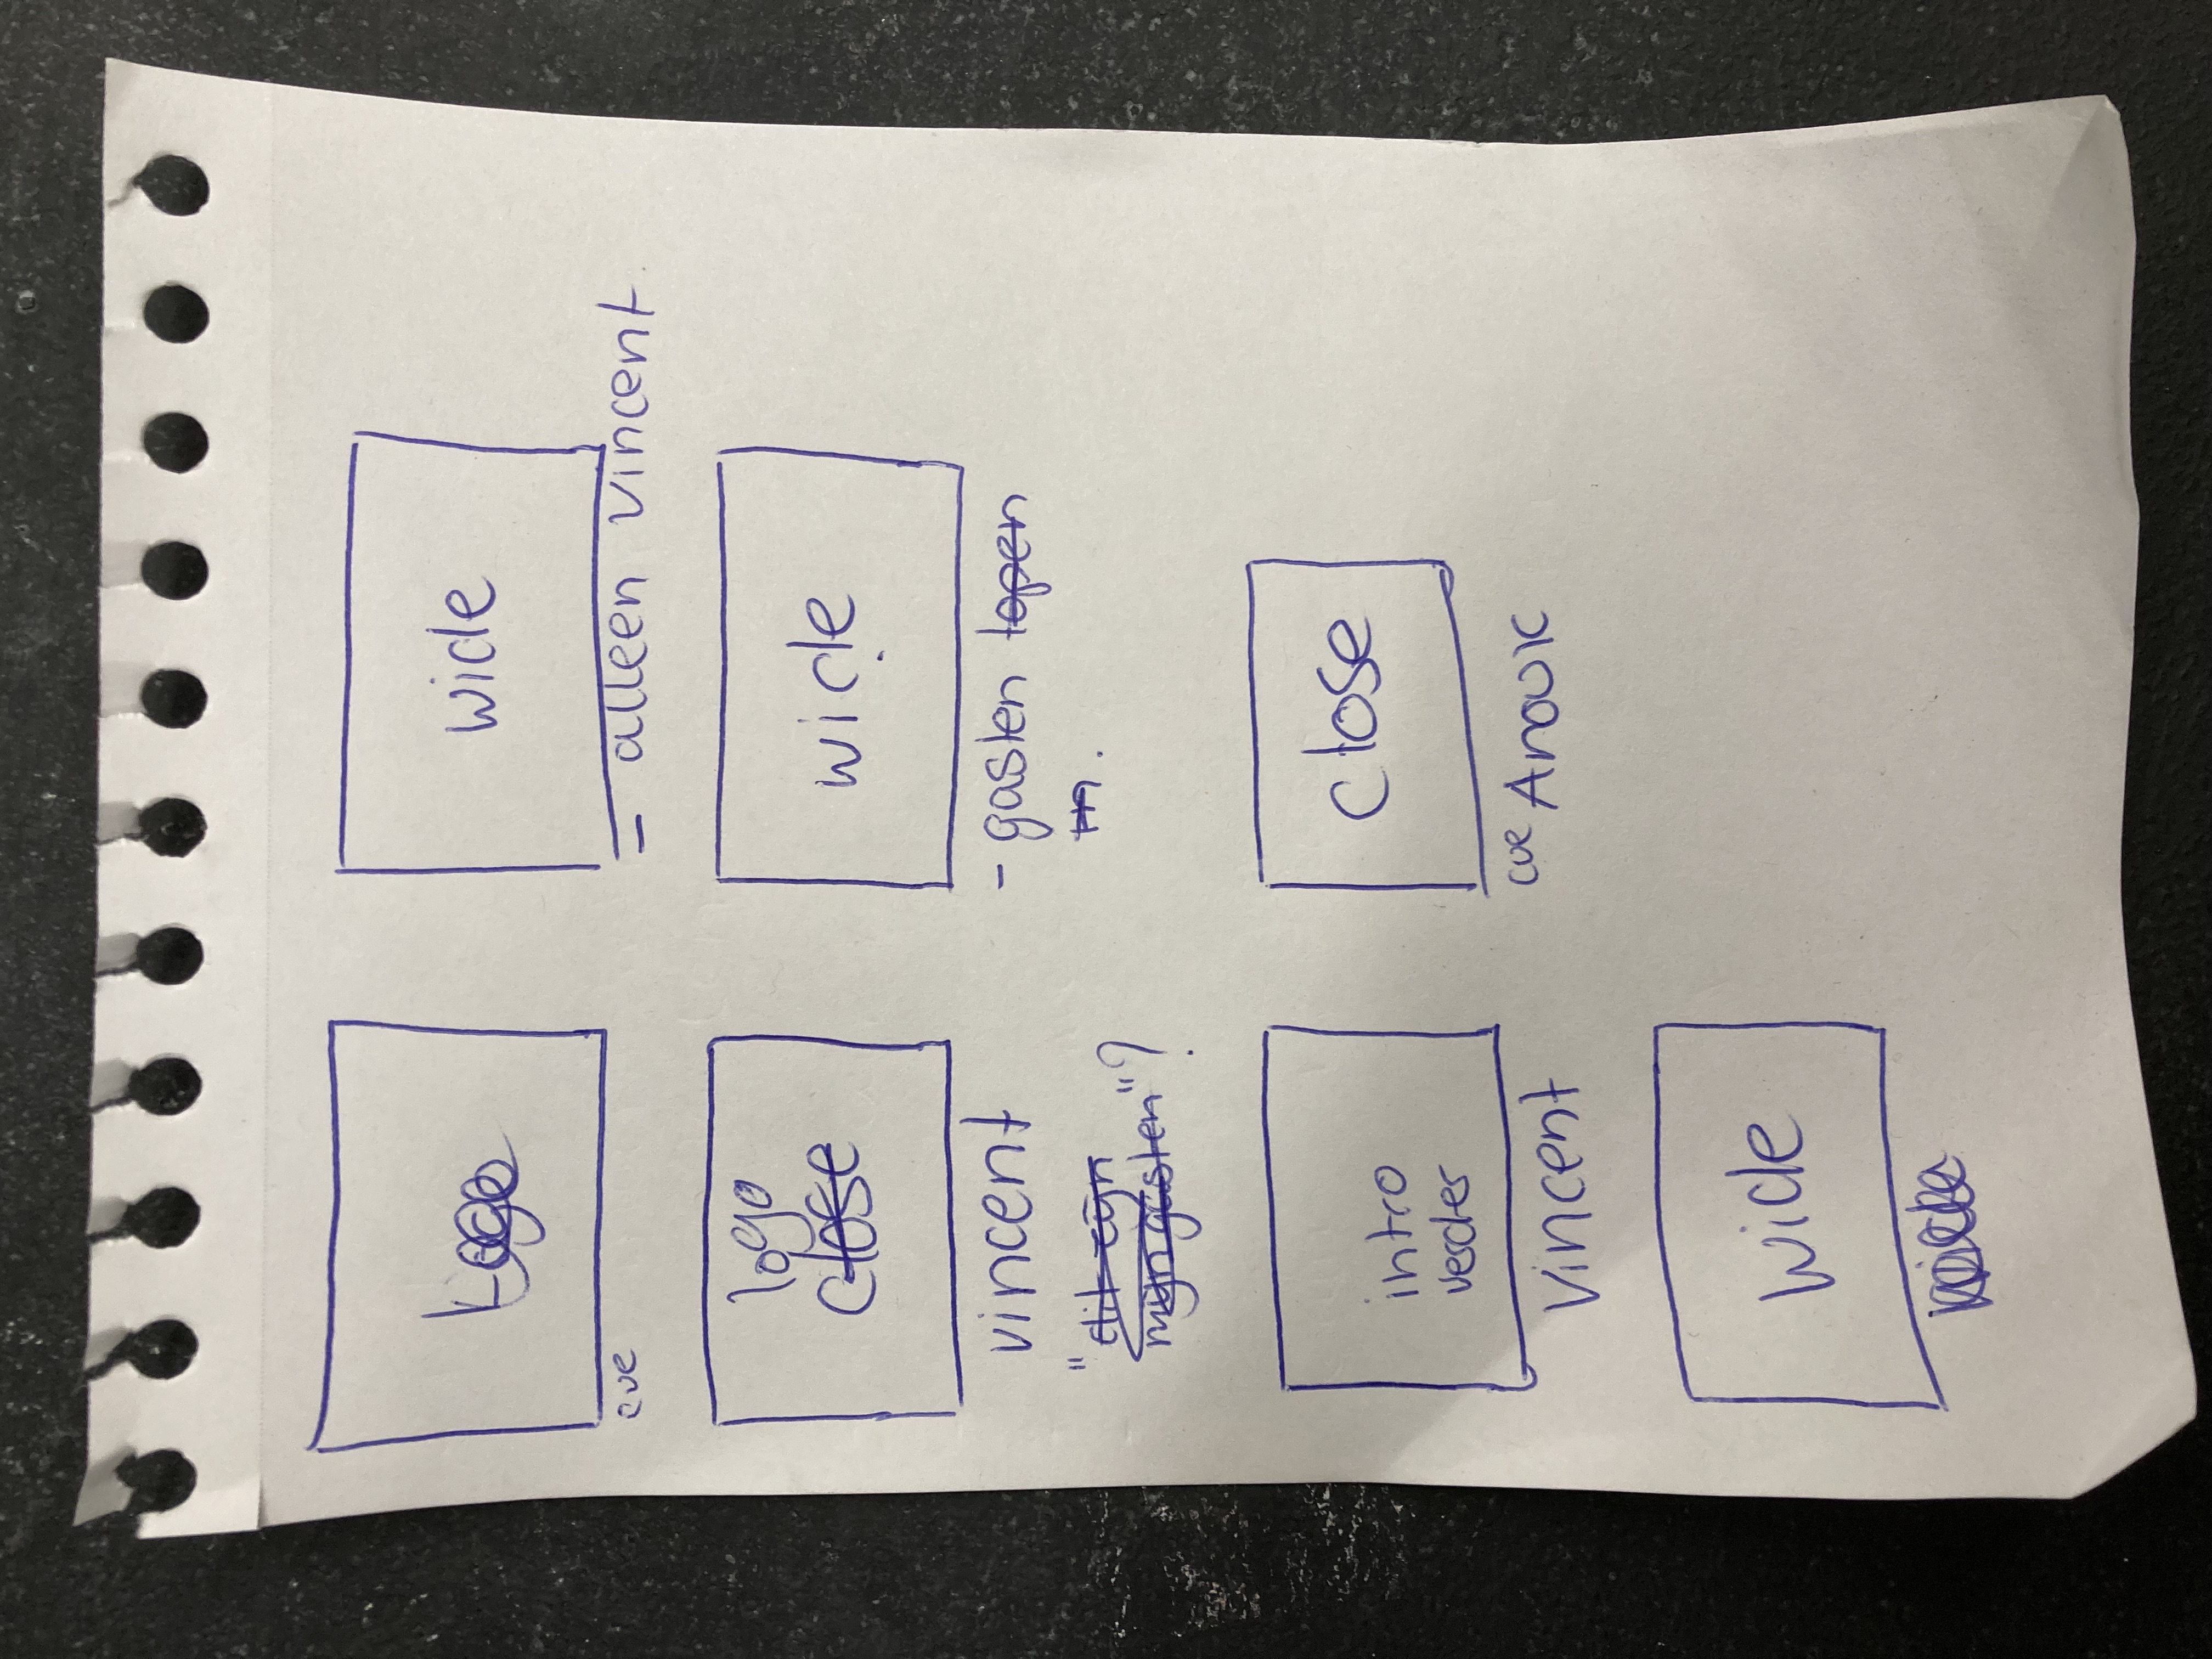 Logo
cue
wide
= alleen vincent
logo
close
vincent
wide
- gasten lopen
in.
"dit zijn
mijn gasten"?
intro
verder
vincent
close
cue Anouk
wide